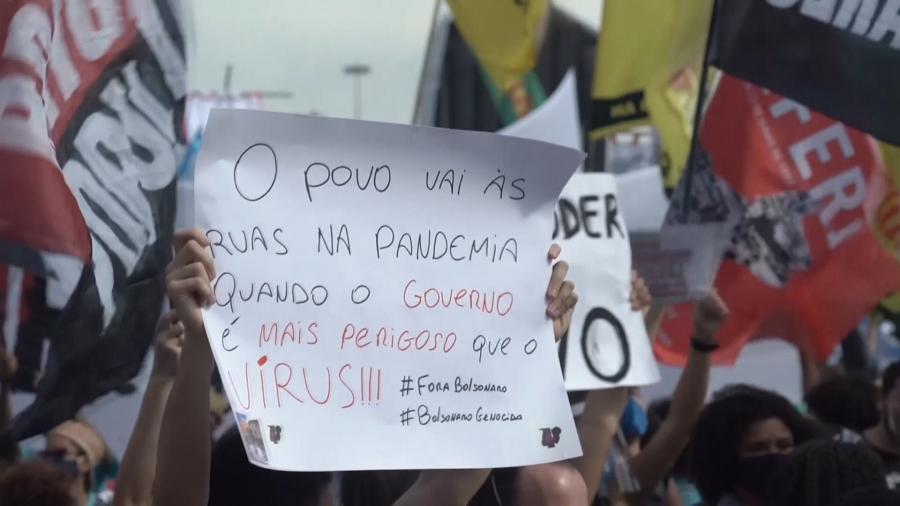 O POVO VAI ÀS
RUAS NA PANDEMIA
QUANDO O GOVERNO
É MAIS PERIGOSO QUE O
VÍRUS!!!
#FORABOLSONARO
#BOLSONAROGENOCIDA